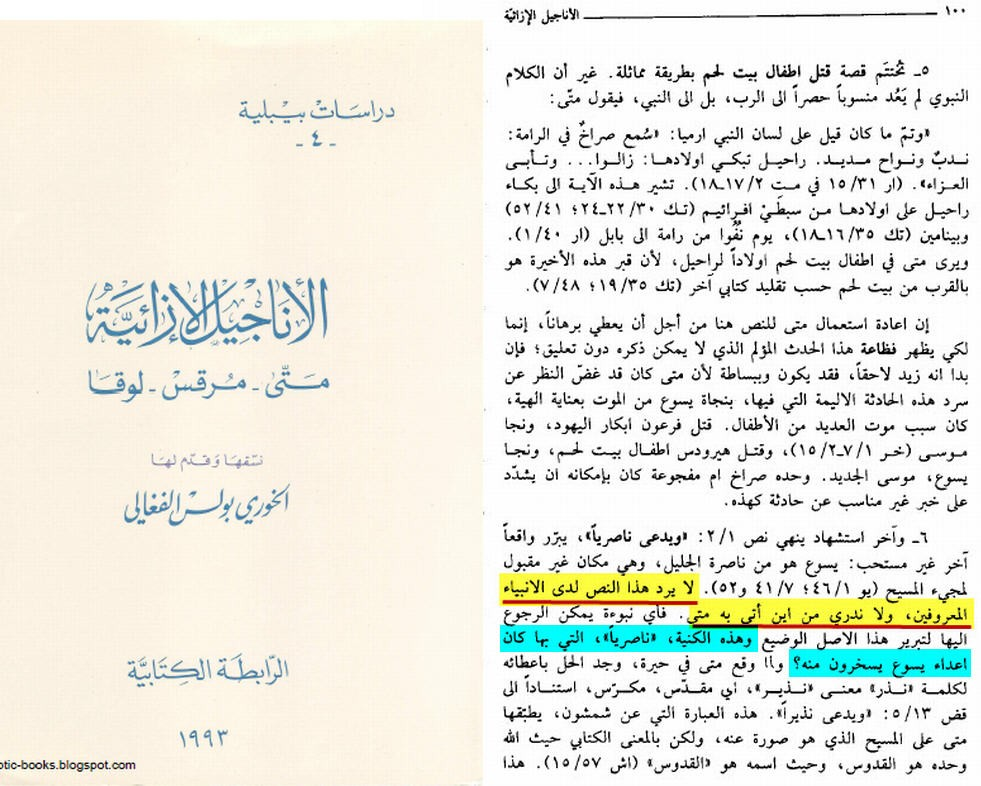 دراسات بيبلية
- ٤ -
الأناجيل الإزائيّة
متّى - مرقس - لوقا
نسّقها وقدّم لها
الخوري بولس الفغالي
الرّابطة الكتابيّة
١٩٩٣
otic-books.blogspot.com
١٠٠ الأناجيل الإزائيّة
٥ـ تُختتَم قصة قتل اطفال بيت لحم بطريقة مماثلة. غير أن الكلام
النبوي لم يَعُد منسوباً حصراً الى الرب، بل الى النبي، فيقول متّى:
«وتمّ ما كان قيل على لسان النبي ارميا: «سُمع صراخٌ في الرامة:
ندبٌ ونواح مديد. راحيل تبكي اولادها: زالوا... وتأبى
العزاء». (ار ٣١/١٥ في مت ٢/١٧ـ١٨). تشير هذه الآية الى بكاء
راحيل على اولادها من سبطَيْ افرائيم (تك ٣٠/٢٢ـ٢٤؛ ٤١/٥٢)
وبينامين (تك ٣٥/١٦ـ١٨)، يوم نُفُوا من رامة الى بابل (ار ٤٠/١).
ويرى متى في اطفال بيت لحم اولاداً لراحيل، لأن قبر هذه الأخيرة هو
بالقرب من بيت لحم حسب تقليد كتابي آخر (تك ٣٥/١٩؛ ٤٨/٧).
إن اعادة استعمال متى للنص هنا من أجل أن يعطي برهاناً، إنما
لكي يظهر فظاعة هذا الحدث المؤلم الذي لا يمكن ذكره دون تعليق؛ فإن
بدا انه زيد لاحقاً، فقد يكون وببساطة لأن متى كان قد غضّ النظر عن
سرد هذه الحادثة الاليمة التي فيها، بنجاة يسوع من الموت بعناية الهية،
كان سبب موت العديد من الأطفال. قتل فرعون ابكار اليهود، ونجا
موسى (خر ١/٧ـ٢/١٥)، وقتل هيرودس اطفال بيت لحم، ونجا
يسوع، موسى الجديد. وحده صراخ ام مفجوعة كان بإمكانه ان يشدّد
على خبر غير مناسب عن حادثة كهذه.
٦ـ وآخر استشهاد ينهي نص ٢/١: «ويدعى ناصرياً»، يبرّر واقعاً
آخر غير مستحب: يسوع هو من ناصرة الجليل، وهي مكان غير مقبول
لمجيء المسيح (يو ١/٤٦؛ ٧/٤١ و٥٢). لا يرد هذا النص لدى الانبياء
المعروفين، ولا ندري من اين أتى به متى. فأي نبوءة يمكن الرجوع
اليها لتبرير هذا الاصل الوضيع وهذه الكنية، «ناصرياً»، التي بها كان
اعداء يسوع يسخرون منه؟ ولما وقع متى في حيرة، وجد الحل باعطائه
لكلمة «نذر» معنى «نذير»، أي مقدّس، مكرّس، استناداً الى
قض ١٣/٥: «ويدعى نذيراً». هذه العبارة التي عن شمشون، يطبّقها
متى على المسيح الذي هو صورة عنه، ولكن بالمعنى الكتابي حيث الله
وحده هو القدوس، وحيث اسمه هو «القدوس» (اش ٥٧/١٥). هذا